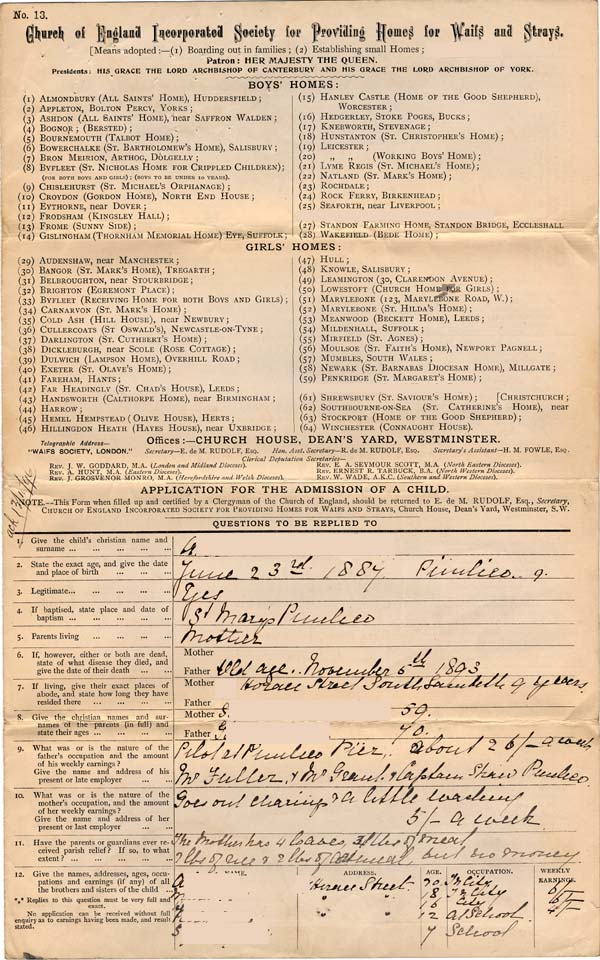 No. 13.
Church of England Incorporated Society for Providing Homes for Waifs and Strays.
[Means adopted:—(1) Boarding out in families; (2) Establishing small Homes;
Patron: HER MAJESTY THE QUEEN.
Presidents: HIS GRACE THE LORD ARCHBISHOP OF CANTERBURY AND HIS GRACE THE LORD ARCHBISHOP OF YORK.
BOYS' HOMES:
(1) ALMONDBURY (ALL SAINTS' HOME), HUDDERSFIELD;
(2) APPLETON, BOLTON PERCY, YORKS;
(3) ASHDON (ALL SAINTS' HOME), near SAFFRON WALDEN;
(4) BOGNOR; (BERSTED);
(5) BOURNEMOUTH (TALBOT HOME);
(6) BOWERCHALKE (ST. BARTHOLOMEW'S HOME), SALISBURY;
(7) BRON MEIRION, ARTHOG, DOLGELLY;
(8) BYFLEET (ST. NICHOLAS HOME FOR CRIPPLED CHILDREN);
(FOR BOTH BOYS AND GIRLS); (BOYS TO BE UNDER 10 YEARS).
(9) CHISLEHURST (ST. MICHAEL'S ORPHANAGE);
(10) CROYDON (GORDON HOME), NORTH END HOUSE;
(11) EYTHORNE, near DOVER;
(12) FRODSHAM (KINGSLEY HALL);
(13) FROME (SUNNY SIDE);
(14) GISLINGHAM (THORNHAM MEMORIAL HOME) EYE, SUFFOLK;
(15) HANLEY CASTLE (HOME OF THE GOOD SHEPHERD),
WORCESTER;
(16) HEDGERLEY, STOKE POGES, BUCKS;
(17) KNEBWORTH, STEVENAGE;
(18) HUNSTANTON (ST. CHRISTOPHER'S HOME);
(19) LEICESTER;
(20) " " (WORKING BOYS' HOME);
(21) LYME REGIS (ST. MICHAEL'S HOME);
(22) NATLAND (ST. MARK'S HOME);
(23) ROCHDALE;
(24) ROCK FERRY, BIRKENHEAD;
(25) SEAFORTH, near LIVERPOOL;
(27) STANDON FARMING HOME, STANDON BRIDGE, ECCLESHALL
(28) WAKEFIELD (BEDE HOME);
GIRLS' HOMES:
(29) AUDENSHAW, near MANCHESTER;
(30) BANGOR (ST. MARK'S HOME), TREGARTH;
(31) BELBROUGHTON, near STOURBRIDGE;
(32) BRIGHTON (EGREMONT PLACE);
(33) BYFLEET (RECEIVING HOME FOR BOTH BOYS AND GIRLS);
(34) CARNARVON (ST. MARK'S HOME);
(35) COLD ASH (HILL HOUSE), near NEWBURY;
(36) CULLERCOATS (ST OSWALD'S), NEWCASTLE-ON-TYNE;
(37) DARLINGTON (ST. CUTHBERT'S HOME);
(38) DICKLEBURGH, near SCOLE (ROSE COTTAGE);
(39) DULWICH (LAMPSON HOME), OVERHILL ROAD;
(40) EXETER (ST. OLAVE'S HOME);
(41) FAREHAM, HANTS;
(42) FAR HEADINGLY (ST. CHAD'S HOUSE), LEEDS;
(43) HANDSWORTH (CALTHORPE HOME), near BIRMINGHAM;
(44) HARROW;
(45) HEMEL HEMPSTEAD (OLIVE HOUSE), HERTS;
(46) HILLINGDON HEATH (HAYES HOUSE), near UXBRIDGE;
(47) HULL;
(48) KNOWLE, SALISBURY;
(49) LEAMINGTON (30, CLARENDON AVENUE);
(50) LOWESTOFT (CHURCH HOME FOR GIRLS);
(51) MARYLEBONE (123, MARYLEBONE ROAD, W.);
(52) MARYLEBONE (ST. HILDA'S HOME)
(53) MEANWOOD (BECKETT HOME), LEEDS;
(54) MILDENHALL, SUFFOLK;
(55) MIRFIELD (ST. AGNES);
(56) MOULSOE (ST. FAITH'S HOME), NEWPORT PAGNELL;
(57) MUMBLES, SOUTH WALES;
(58) NEWARK (ST. BARNABAS DIOCESAN HOME), MILLGATE;
(59) PENKRIDGE (ST. MARGARET'S HOME);
(61) SHREWSBURY (ST. SAVIOUR'S HOME); [CHRISTCHURCH;
(62) SOUTHBOURNE-ON-SEA (ST. CATHERINE'S HOME), near
(63) STOCKPORT (HOME OF THE GOOD SHEPHERD);
(64) WINCHESTER (CONNAUGHT HOUSE).
Offices:—CHURCH HOUSE, DEAN'S YARD, WESTMINSTER.
Telegraphic Address—
"WAIFS SOCIETY, LONDON."
Secretary—E. DE M. RUDOLF, ESQ. Hon. Asst. Secretary—R. DE M. RUDOLF, ESQ. Secretary's Assistant—H. M. FOWLE, ESQ.
Clerical Deputation Secretaries—
REV. J. W. GODDARD, M.A. (London and Midland Dioceses).
REV. A. HUNT, M.A. (Eastern Dioceses).
REV. J. GROSVENOR MONRO, M.A. (Herefordshire and Welsh Dioceses).
REV. E. A. SEYMOUR SCOTT, M.A. (North Eastern Dioceses).
REV. ERNEST R. TARBUCK, B.A. (North Western Dioceses).
REV. W. WADE, A.K.C. (Southern and Western Dioceses).
APPLICATION FOR THE ADMISSION OF A CHILD.
NOTE.—This Form when filled up and certified by a Clergyman of the Church of England, should be returned to E. de M. RUDOLF, Esq., Secretary,
CHURCH OF ENGLAND INCORPORATED SOCIETY FOR PROVIDING HOMES FOR WAIFS AND STRAYS, Church House, Dean's Yard, Westminster, S.W.
QUESTIONS TO BE REPLIED TO
1. Give the child's christian name and
surname ... ... ... ... ...
A
2. State the exact age, and give the date
and place of birth ... ... ... ...
June 23rd 1887 Pimlico. 9.
3. Legitimate... ... ... ... ...
Yes
4. If baptised, state place and date of
baptism ... ... ... ... ...
St Marys Pimlico
5. Parents living ... ... ... ...
Mother
6. If, however, either or both are dead,
state of what disease they died, and
give the date of their death ... ...
Mother
Father Old age. November 5th 1893
7. If living, give their exact places of
abode, and state how long they have
resided there ... ... ... ...
Mother Horace Street South Lambeth 9 years.
Father
8. Give the christian names and sur-
names of the parents (in full) and
state their ages ... ... ...
Mother S. 59.
Father G 70.
9. What was or is the nature of the
father's occupation and the amount
of his weekly earnings?
Give the name and address of his
present or late employer ... ...
Pilot at Pimlico Pier, about 26/- a week
Mr Fuller & Mr Grant & Captain Shaw Pimlico.
10. What was or is the nature of the
mother's occupation, and the amount
of her weekly earnings?
Give the name and address of her
present or last employer ... ...
Goes out charing & a little washing
5/- a week
11. Have the parents or guardians ever re-
ceived parish relief? If so, to what
extent? ... ... ... ... ...
The Mother has 4 loaves, 3 lbs of meat
2 lbs of rice & 2 lbs of oatmeal, but no money
12. Give the names, addresses, ages, occu-
pations and earnings (if any) of all
the brothers and sisters of the child ...
*** Replies to this question must be very full and
exact.
No application can be received without full
enquiry as to earnings having been made, and result
stated.
NAME. ADDRESS. AGE. OCCUPATION. WEEKLY EARNINGS.
A Horace Street 20 In City 6/-
" " 18 In City 6/-
" " 16 City 4/-
" " 12 At School
S " " 7 School